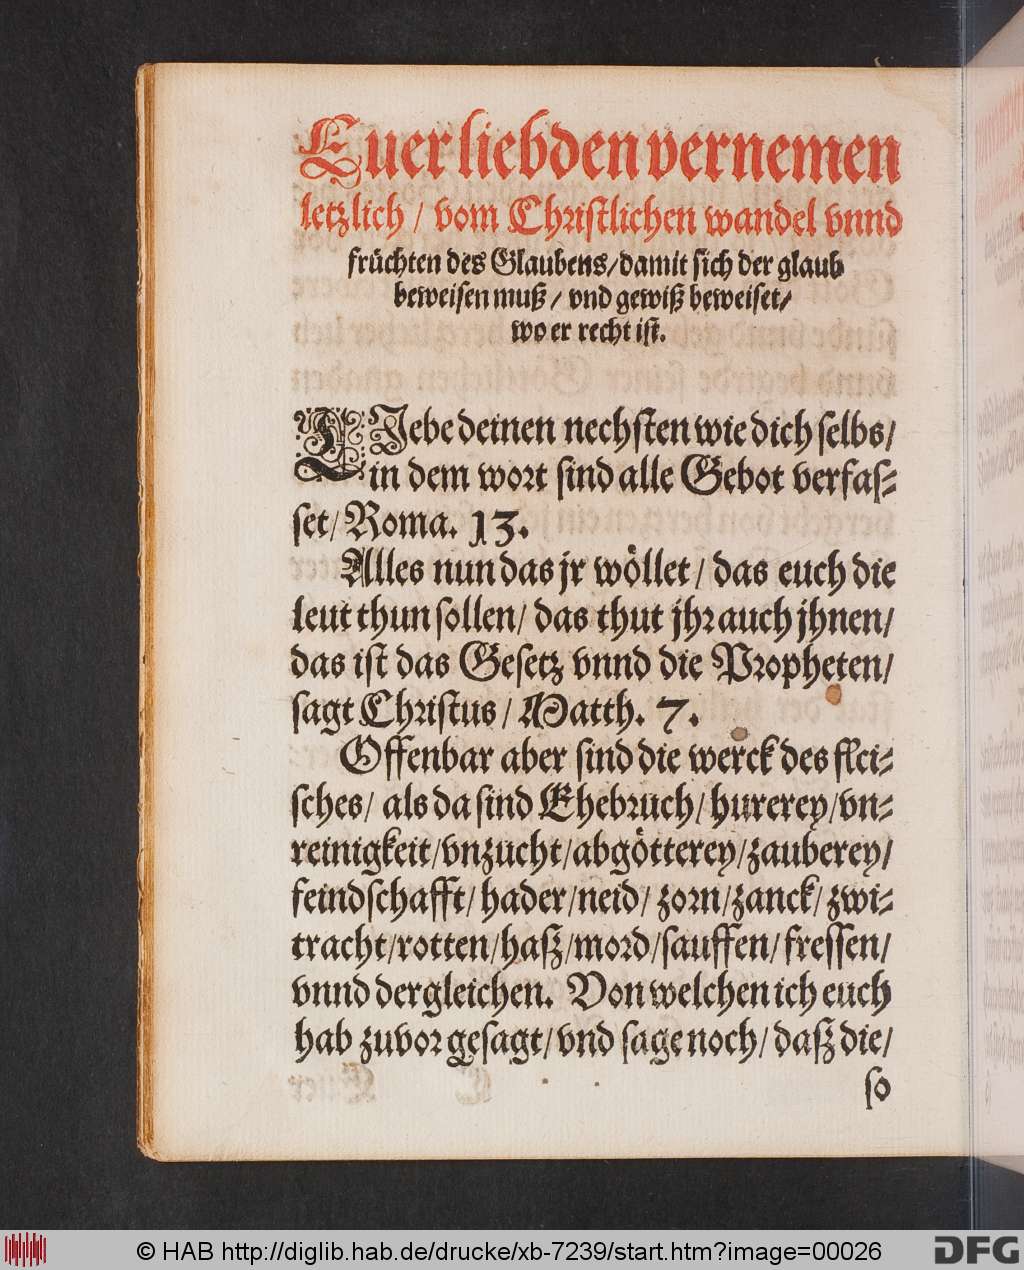 Euer liebden vernemen
letzlich / vom Christlichen wandel vnnd
früchten des Glaubens/damit sich der glaub
beweisen muß / vnd gewiß beweiset/
wo er recht ist.
LIebe deinen nechsten wie dich selbs/
in dem wort sind alle Gebot verfas-
set/ Roma. 13.
Alles nun das jr wöllet/ das euch die
leut thun sollen/ das thut jhr auch jhnen/
das ist das Gesetz vnnd die Propheten/
sagt Christus/ Matth. 7.
Offenbar aber sind die werck des flei-
sches/ als da sind Ehebruch/ hurerey/vn-
reinigkeit/vnzucht/abgötterey/zauberey/
feindschafft/ hader/neid/ zorn/zanck/ zwi-
tracht/rotten/hasz/mord/sauffen/ fressen/
vnnd dergleichen. Von welchen ich euch
hab zuvor gesagt/ vnd sage noch/ dasz die/
so
© HAB http://diglib.hab.de/drucke/xb-7239/start.htm?image=00026
DFG